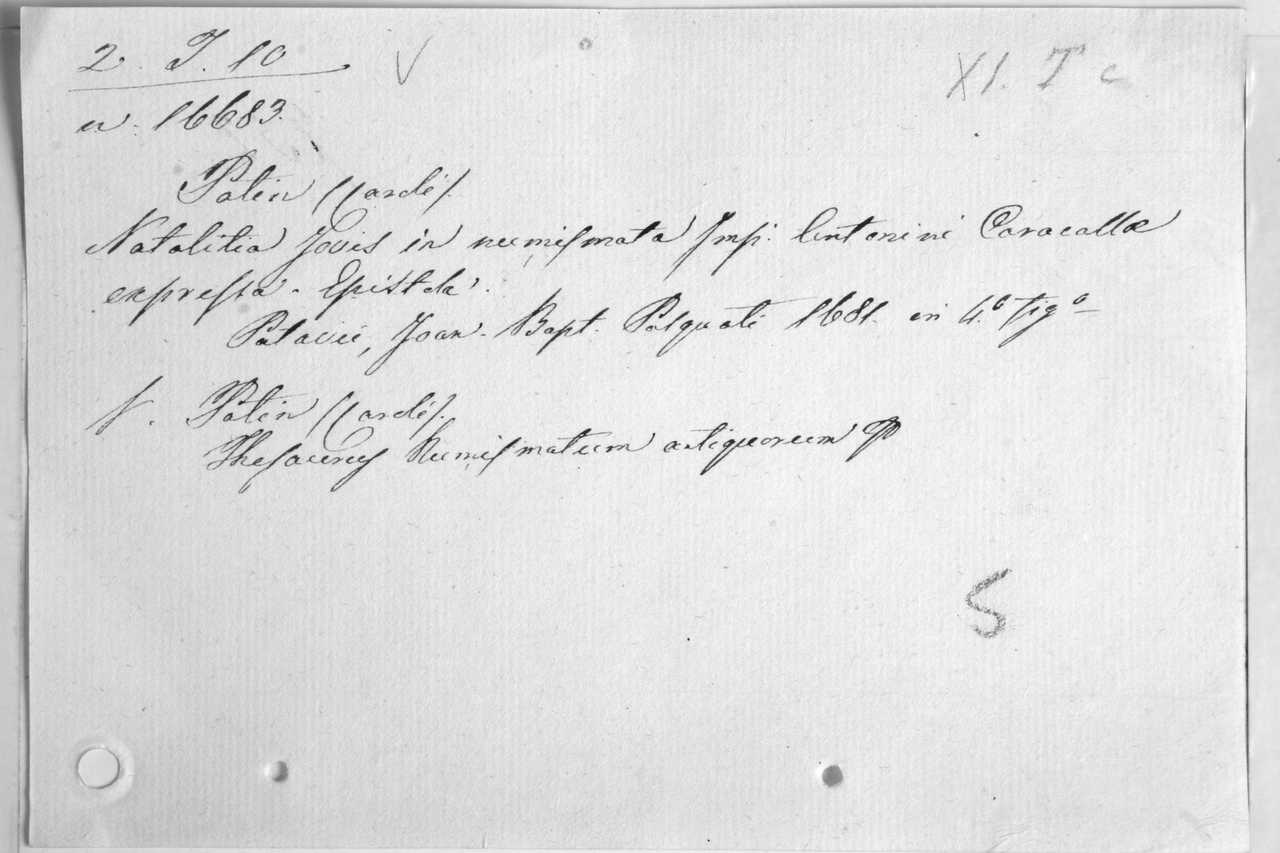 2. T. 10 V XI. T c
n. 16683.
Patin (Carlé).
Natalitia Jovis in numismata Imp: Antonini Caracallæ
expressa. Epistola.
Patavii, Joan. Bapt. Pasquati 1681. in 4.º fig.º
V. Patin (Carlé).
Thesaurus Numismatum antiquorum
S